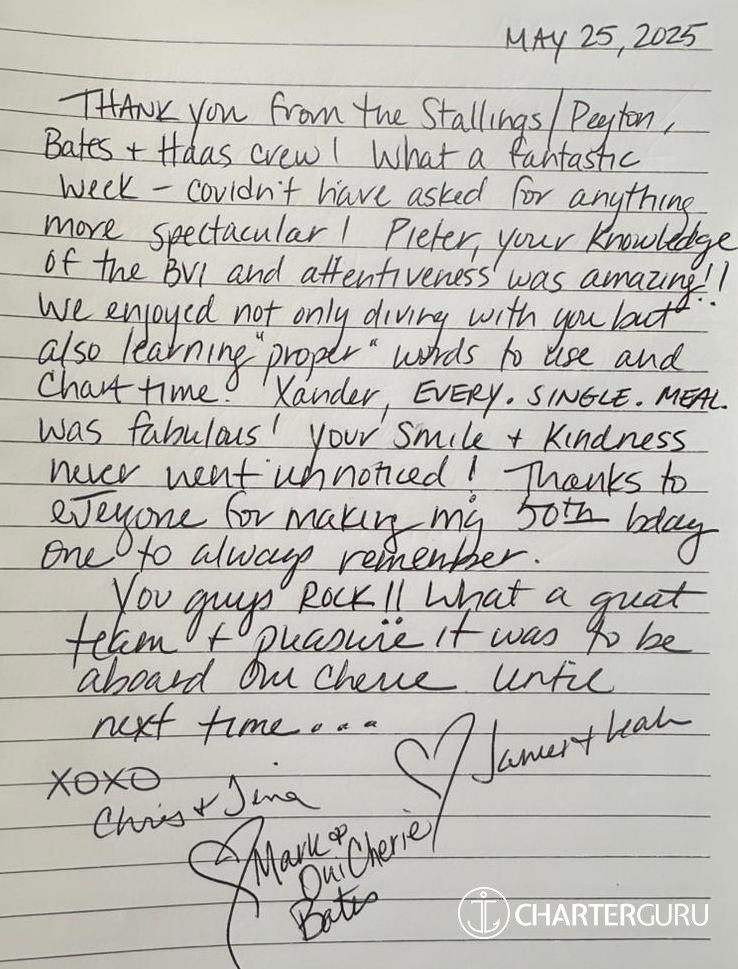 MAY 25, 2025
THANK you from the Stallings/Peyton,
Bates + Haas crew! What a fantastic
week – couldn't have asked for anything
more spectacular! Pieter, your knowledge
of the BVI and attentiveness was amazing!!
We enjoyed not only diving with you but
also learning "proper" words to use and
Chart time! Xander, EVERY. SINGLE. MEAL.
was fabulous! Your smile + kindness
never went unnoticed! Thanks to
everyone for making my 50th bday
one to always remember.
You guys ROCK!! What a great
team + pleasure it was to be
aboard Oui Cherie until
next time...
James + Leah
XOXO
Chris + Jina
Mark &
Oui Cherie
Bates
CHARTERGURU